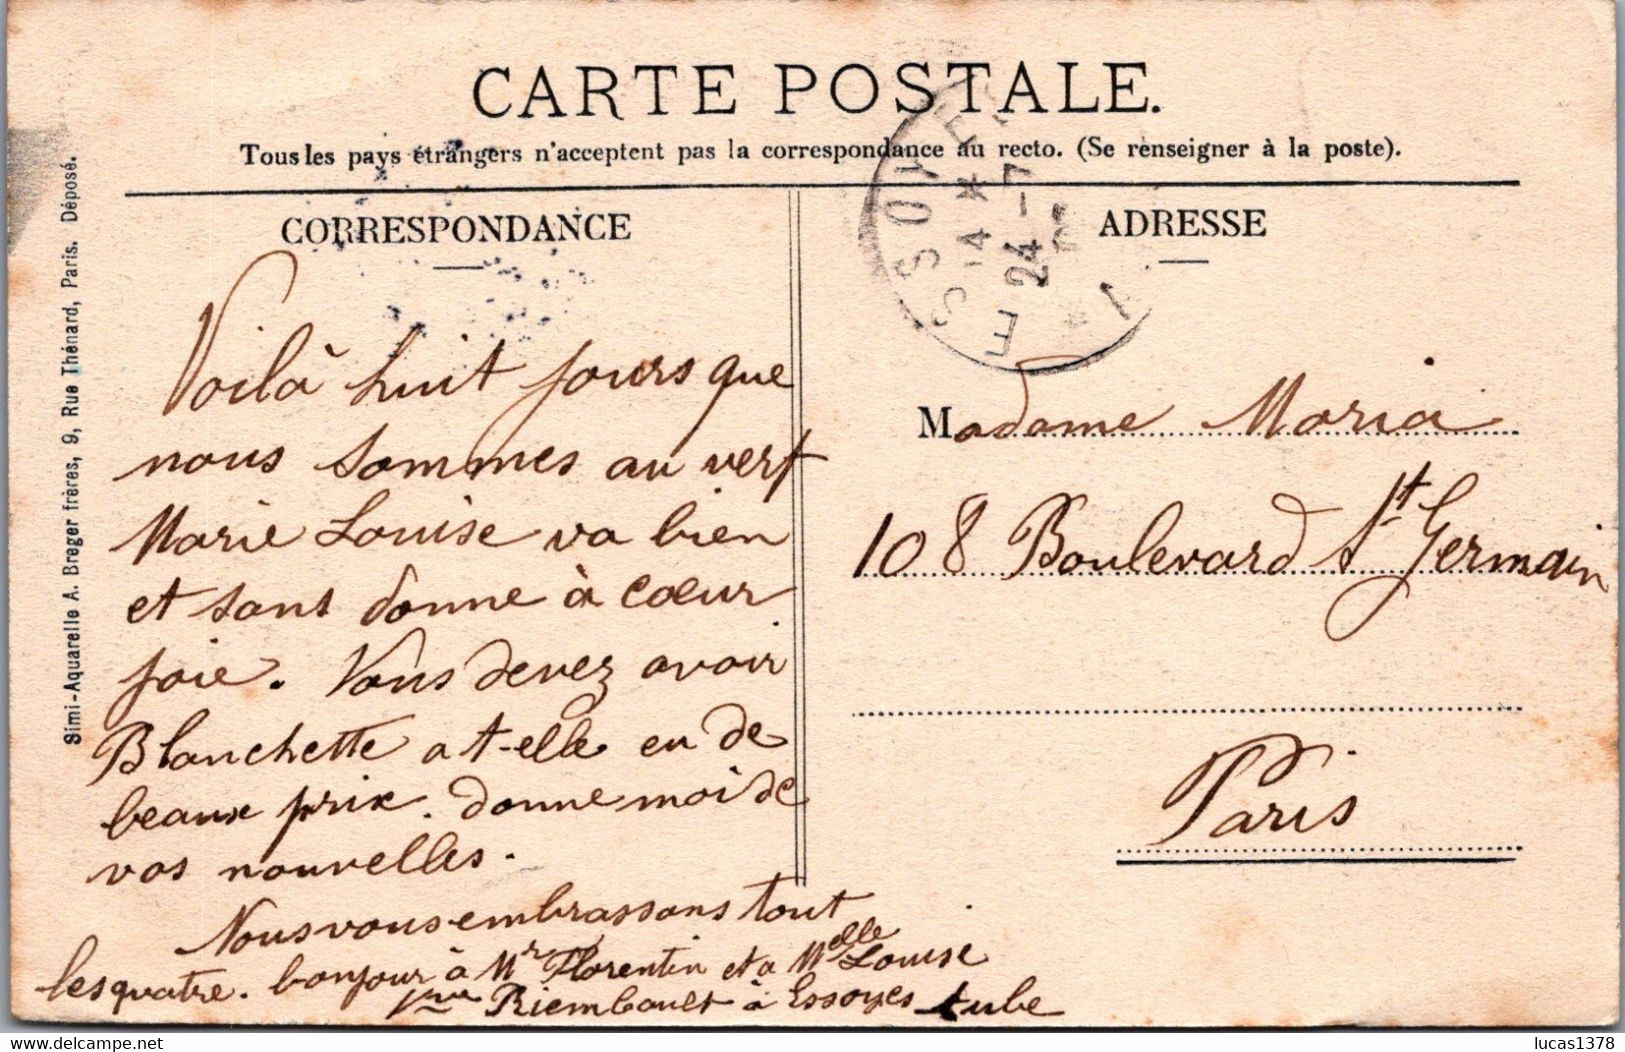 CARTE POSTALE.
Tous les pays étrangers n'acceptent pas la correspondance au recto. (Se renseigner à la poste).
CORRESPONDANCE
ADRESSE
Simi-Aquarelle A. Breger frères, 9, Rue Thénard, Paris. Déposé.
ESSOYES
14 *
24 -7
Voilà huit jours que
nous sommes au vert
Marie Louise va bien
et sans donne à coeur
joie. Vous devez avoir
Blanchette a t-elle eu de
beaux prix. donne moi de
vos nouvelles.
Nous vous embrassons tout
les quatre. bonjour à Mr Florentin et a Melle Louise
Riembault à Essoyes Aube
Madame Maria
108 Boulevard St Germain
Paris
lucas1378